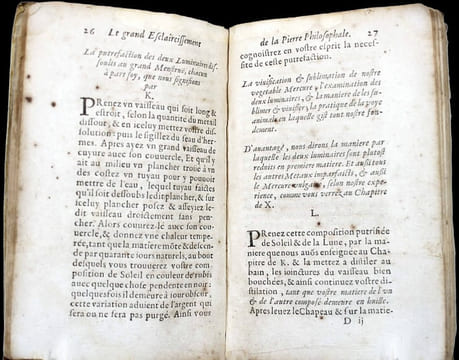 26 Le grand Esclaircissement
La putrefaction des deux Luminaires dis-
souls au grand Menstruë, chacun
à part soy, que nous signifions
par
K.
PRenez vn vaisseau qui soit long &
estroit, selon la quantité du metal
dissout, & en iceluy mettez vostre dis-
solution: puis le sigillez du seau d'her-
mes. Apres ayez vn grand vaisseau de
cuyure auec son couuercle, Et qu'il y
ait au milieu vn plancher troüé à vn
des costez vn tuyau pour y pouuoir
mettre de l'eau, lequel tuyau faictes
qu'il soit dessouls ledit plancher, & sur
iceluy plancher posez & asseyez le-
dit vaisseau droictement sans pen-
cher. Alors couurez-lé auec son cou-
uercle, & donnez vne chaleur tempe-
rée, tant que la matiere môte & descen-
de par quarante iours naturels, au bout
desquels vous trouuerez vostre com-
position de Soleil en couleur de rubis
auec quelque chose pendente en noir:
quelquesfois il demeure à iour obscur,
cette variation aduient de l'argent qui
sera ou ne sera pas purgé. Ainsi vous
de la Pierre Philosophale. 27
cognoistrez en vostre esprit la neces-
sité de cette putrefaction.
La viuification & sublimation de nostre
vegetable Mercure, & l'examination des
deux luminaires, & la maniere de les su-
blimer & viuifier, la pratique de la voye
animale en laquelle gist tout nostre fon-
dement.
D'auantage, nous dirons la maniere par
laquelle les deux luminaires sont plustost
reduits en premiere matiere. Et aussi tous
les autres Metaux imparfaicts, & aussi
le Mercure vulgaire, selon nostre expe-
rience, comme vous verrez au Chapitre
de X.
L.
PRenez cette composition putrifiée
de Soleil & de la Lune, par la ma-
niere que nous auõs enseignée au Cha-
pitre de K. & la mettez a distiler au
bain, les ioinctures du vaisseau bien
bouchées, & ainsi continuez vostre di-
stilation, tant que vostre matiere de l'vn
& de l'autre composé demeure en huille.
Apres leuez le Chapeau & sur la matie-
D ij